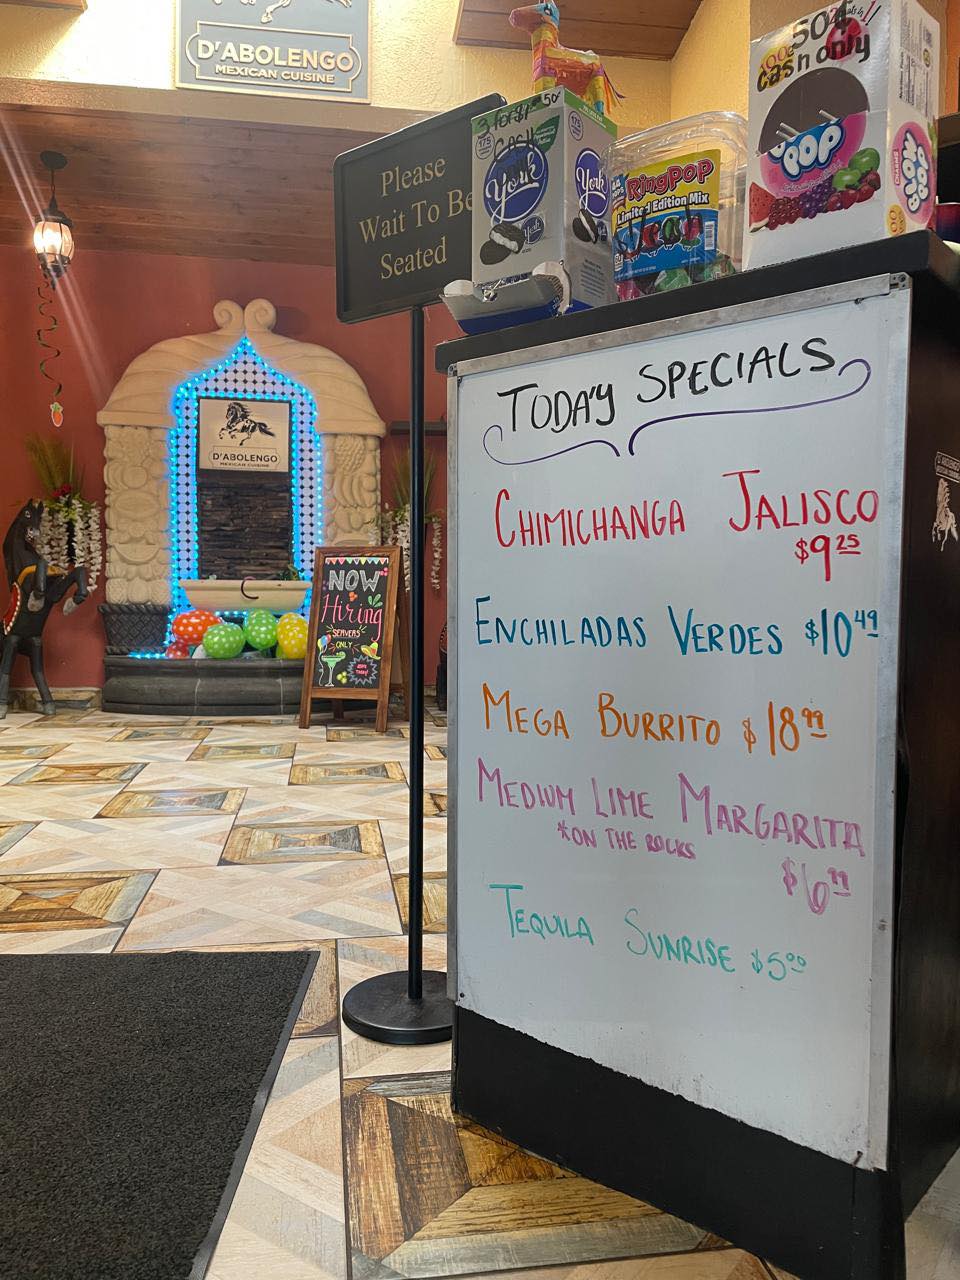 D'ABOLENGO
MEXICAN CUISINE
Please
Wait To Be
Seated
3 for $1 50¢
CASH
175
York
175
York
York
RingPop
Limited Edition Mix
50¢
cash only
POP
BLOW
POP
D'ABOLENGO
MEXICAN CUISINE
NOW
Hiring
SERVERS
ONLY
TODAY SPECIALS
CHIMICHANGA JALISCO
$9.25
ENCHILADAS VERDES $10.49
MEGA BURRITO $18.99
MEDIUM LIME MARGARITA
*ON THE ROCKS
$6.99
TEQUILA SUNRISE $5.00
D'ABOLENGO